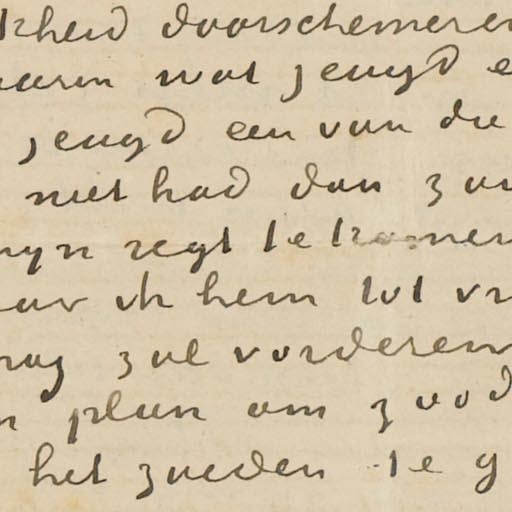 kheid doorschemeren
waarin wat jeugd e
jeugd een van die
niet had dan zou
mijn regt te komen
ik hem tot vr
nog zal vorderen
plan om zood
het zuiden te g